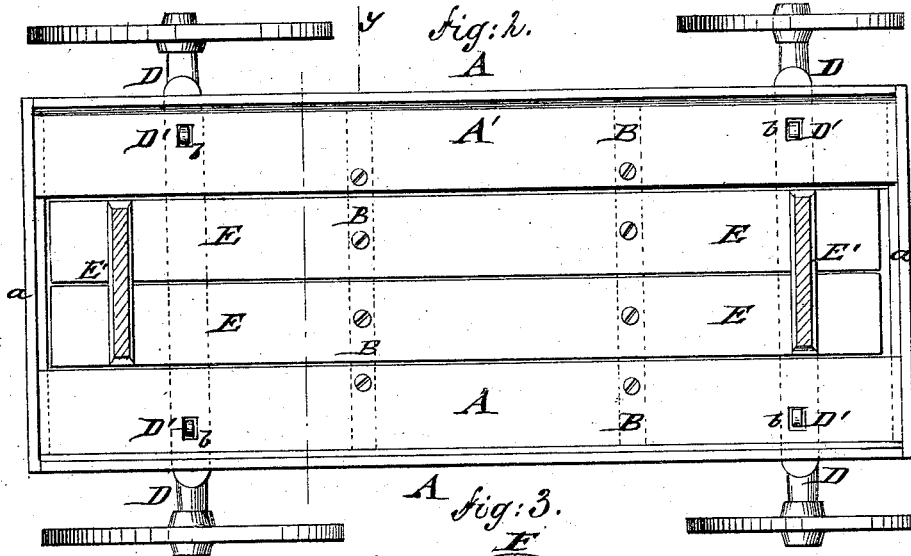 y Fig: 2.
A
D D
D' b A' B b D'
B
E E
a E' E' a
E E
B
A
D' b B b D'
D A D
Fig: 3.
F